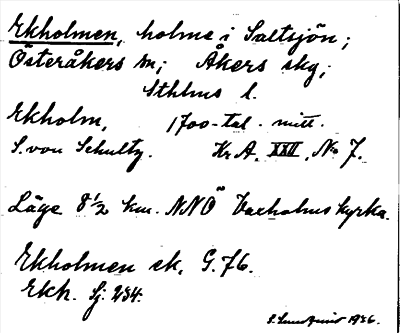 Ekholmen, holme i Saltsjön;
Österåkers sn; Åkers skg;
Sthlms l.
Ekholm, 1700-tal. mitt.
S. von Schultz. Kr A. XXII, No 7.
Läge 8 1/2 km. NNÖ Vaxholms kyrka.
Ekholmen ek. G. 76.
Ekh. Sj. 234.
1936.